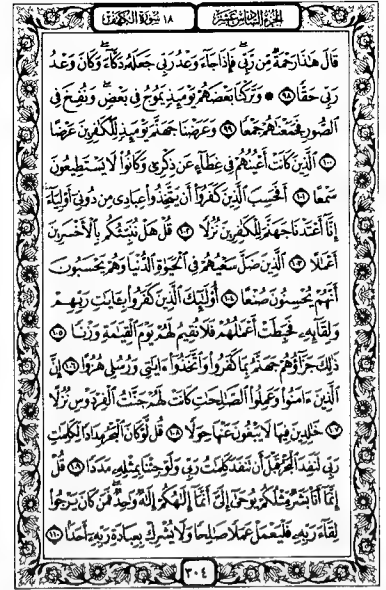 الجزء السادس عشر ١٨ سورة الكهف
قَالَ هَٰذَا رَحْمَةٌ مِّن رَّبِّي فَإِذَا جَآءَ وَعْدُ رَبِّي جَعَلَهُۥ دَكَّآءَ وَكَانَ وَعْدُ
رَبِّي حَقًّا ٩٨ وَتَرَكْنَا بَعْضَهُمْ يَوْمَئِذٍ يَمُوجُ فِي بَعْضٍ وَنُفِخَ فِي
ٱلصُّورِ فَجَمَعْنَٰهُمْ جَمْعًا ٩٩ وَعَرَضْنَا جَهَنَّمَ يَوْمَئِذٍ لِّلْكَٰفِرِينَ عَرْضًا
١٠٠ ٱلَّذِينَ كَانَتْ أَعْيُنُهُمْ فِي غِطَآءٍ عَن ذِكْرِي وَكَانُوا۟ لَا يَسْتَطِيعُونَ
سَمْعًا ١٠١ أَفَحَسِبَ ٱلَّذِينَ كَفَرُوٓا۟ أَن يَتَّخِذُوا۟ عِبَادِي مِن دُونِيٓ أَوْلِيَآءَ
إِنَّآ أَعْتَدْنَا جَهَنَّمَ لِلْكَٰفِرِينَ نُزُلًا ١٠٢ قُلْ هَلْ نُنَبِّئُكُم بِٱلْأَخْسَرِينَ
أَعْمَٰلًا ١٠٣ ٱلَّذِينَ ضَلَّ سَعْيُهُمْ فِي ٱلْحَيَوٰةِ ٱلدُّنْيَا وَهُمْ يَحْسَبُونَ
أَنَّهُمْ يُحْسِنُونَ صُنْعًا ١٠٤ أُو۟لَٰٓئِكَ ٱلَّذِينَ كَفَرُوا۟ بِـَٔايَٰتِ رَبِّهِمْ
وَلِقَآئِهِۦ فَحَبِطَتْ أَعْمَٰلُهُمْ فَلَا نُقِيمُ لَهُمْ يَوْمَ ٱلْقِيَٰمَةِ وَزْنًا ١٠٥
ذَٰلِكَ جَزَآؤُهُمْ جَهَنَّمُ بِمَا كَفَرُوا۟ وَٱتَّخَذُوٓا۟ ءَايَٰتِي وَرُسُلِي هُزُوًا ١٠٦ إِنَّ
ٱلَّذِينَ ءَامَنُوا۟ وَعَمِلُوا۟ ٱلصَّٰلِحَٰتِ كَانَتْ لَهُمْ جَنَّٰتُ ٱلْفِرْدَوْسِ نُزُلًا
١٠٧ خَٰلِدِينَ فِيهَا لَا يَبْغُونَ عَنْهَا حِوَلًا ١٠٨ قُل لَّوْ كَانَ ٱلْبَحْرُ مِدَادًا لِّكَلِمَٰتِ
رَبِّي لَنَفِدَ ٱلْبَحْرُ قَبْلَ أَن تَنفَدَ كَلِمَٰتُ رَبِّي وَلَوْ جِئْنَا بِمِثْلِهِۦ مَدَدًا ١٠٩ قُلْ
إِنَّمَآ أَنَا۠ بَشَرٌ مِّثْلُكُمْ يُوحَىٰٓ إِلَيَّ أَنَّمَآ إِلَٰهُكُمْ إِلَٰهٌ وَٰحِدٌ فَمَن كَانَ يَرْجُوا۟
لِقَآءَ رَبِّهِۦ فَلْيَعْمَلْ عَمَلًا صَٰلِحًا وَلَا يُشْرِكْ بِعِبَادَةِ رَبِّهِۦٓ أَحَدًۢا ١١٠
٣٠٤